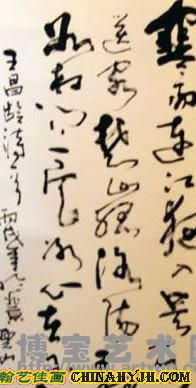 寒雨连江夜入吴
送客楚山孤洛阳
如相问一片冰心在
王昌龄诗 丙戌年
博宝艺术
翰艺佳画 CHINAHYJH.COM